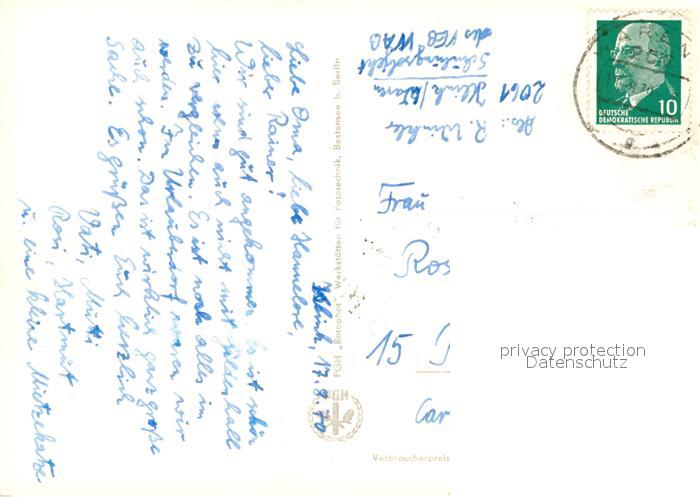 Klink, 17.8.70
Liebe Oma, liebe Hannelore,
lieber Rainer!
Wir sind gut angekommen. Es ist schön
hier wenn auch nicht mit
zu vergleichen. Es ist noch alles im
werden. Im Urlauberdorf waren wir
auch schon. Das ist wirklich ganz große
Sache. Es grüßen Euch herzlich
Vati, Mutti
Rosi, Hartmut
u. eine kleine Mietzekatze
FGH „Rotophot“, Werkstätten für Fototechnik, Bestensee b. Berlin
FGH
Verbraucherpreis
Abs.: R.
2061 Klink/Waren
Schulungsobjekt
des VEB WAO
10
DEUTSCHE
DEMOKRATISCHE REPUBLIK
Frau
Ros
15
Car
privacy protection
Datenschutz